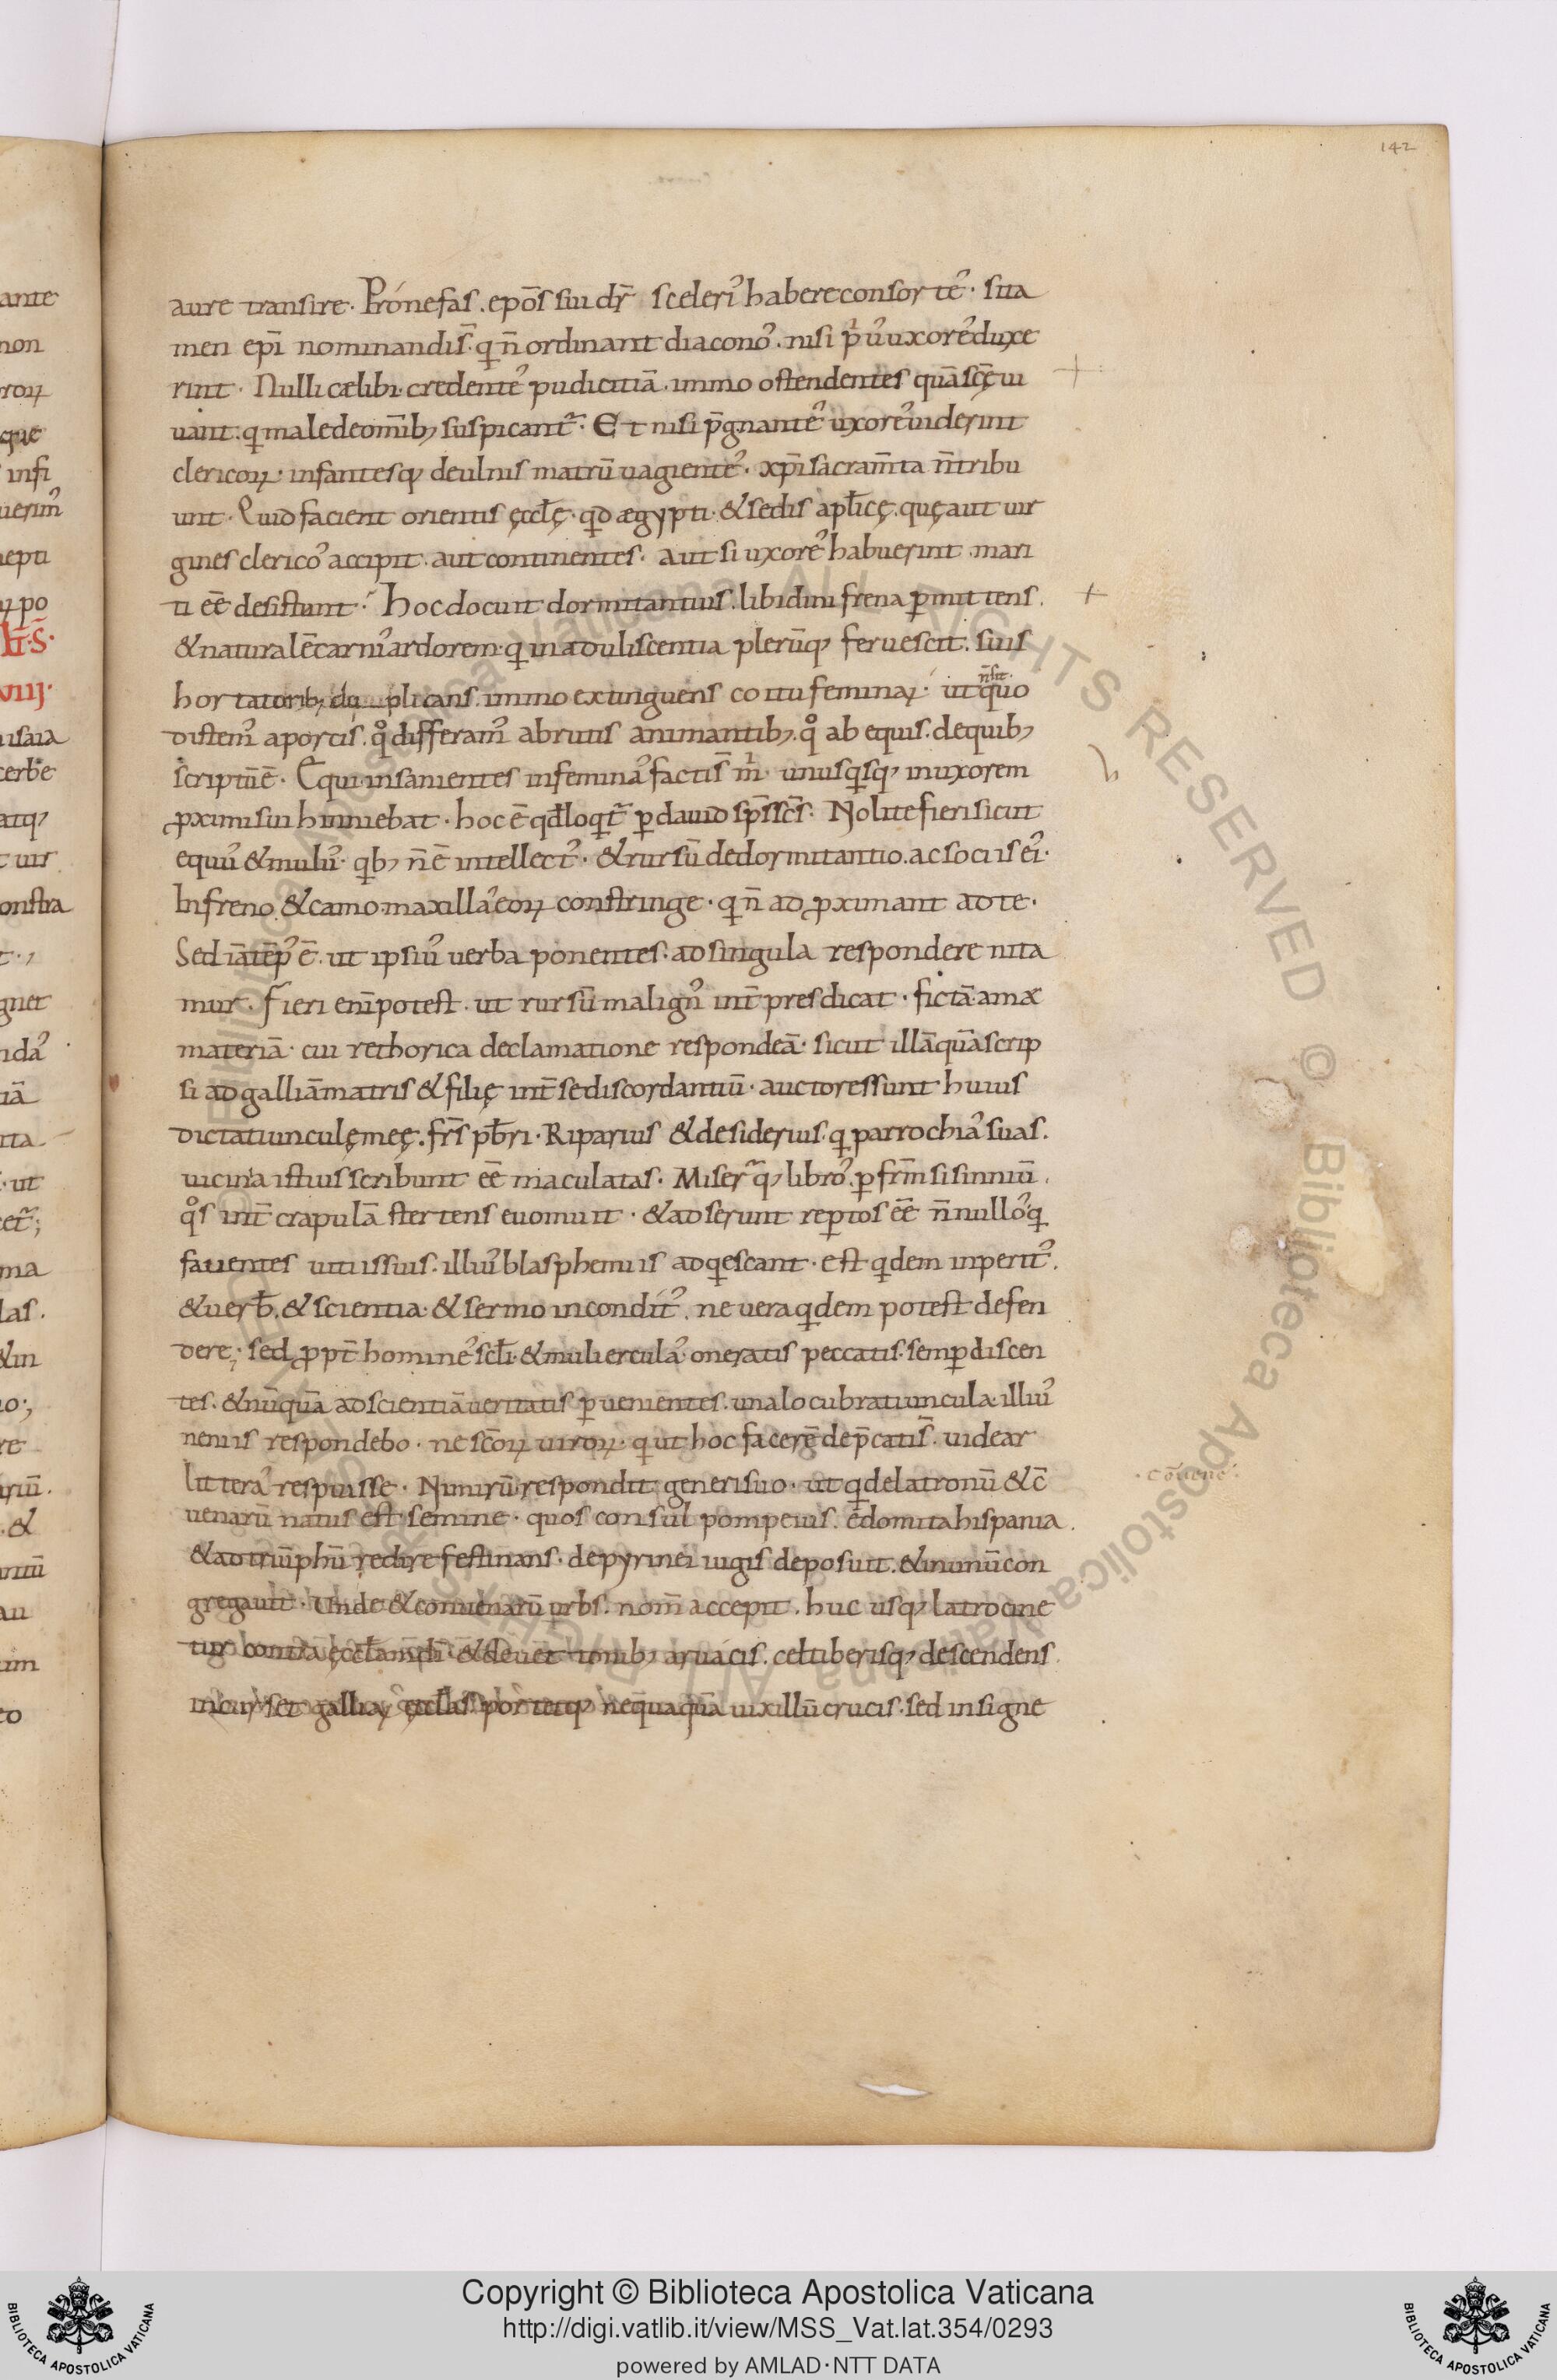 142
aure transire. Prónefas. ep̄os sui dr̄ sceleri᾽ habere consorte᾽. si ta
men ep̄i nominandis̄. q̄n̄ ordinant diacono᾽. nisi p͛u᾽ uxore᾽ duxe
rint. Nulli cælibi credente᾽ pudicitiā. immo ostendentes quā sc̄ę ui
uant. q male de om̄ib; suspicant᷑. Et nisi p̄gnante᾽ uxore᾽ uiderint
clericoꝝ. infantesq; de ulnis matrū uagiente᾽. xp̄i sacram̄ta n̄ tribu
unt. Quid facient orientis ęccl̄ę. qd ægypti. & sedis apl̄icę. quę aut uir
gines clerico᾽ accipit. aut continentes. aut si uxore᾽ habuerint mari
ti eē desistunt. Hoc docuit dormitantius. libidini frena ꝑmittens.
& naturalē carni᾽ ardorem. q in aduliscentia plerūq; feruescit. suis
hortatorib; du plicans. immo extinguens coitu feminaꝝ. ut quo
n̄ sit
distem᾽ a porcis. qͦ differam᾽ a brutis animantib;. qͦ ab equis. de quib;
scriptū ē. Equi insanientes in femina᾽ facti s̄ m͛. unusqsq; in uxorem
ꝓximi sui hinniebat. hoc ē qd̄ loqt᷑ ꝑ dauid sp̄s sc̄s. Nolite fieri sicut
equu᾽ & mulu᾽. qb; n̄ ē intellect᾽. & rursū de dormitantio. ac sociis ei᾽.
In freno & camo maxilla᾽ eoꝝ constringe. q n̄ adꝓximant ad te.
Sed iā tēp᾽ ē. ut ipsiu᾽ uerba ponentes. ad singula respondere nita
mur. Fieri eni᾽ potest. ut rursū malign᾽ int̄pres dicat. fictā a me
materiā. cui rethorica declamatione respondeā. sicut illā quā scrip
si ad galliā matris & filię int̄ se discordantiū. auctores sunt huius
dictatiunculę meę. fr̄s pb̄ri. Riparius & desiderius. q parrochia᾽ suas.
uicinia istius scribunt eē maculatas. Miser᷑q; libro᾽. ꝑ frm̄ sisinniū.
qͦs int̄ crapulā stertens euomuit. & adserunt reꝑtos eē n̄nullo᾽ q
fauentes uitiis suis. illiu᾽ blasphemiis adqescant. est qdem inperit᾽.
& uerb̄. & scientia. & sermo incondit᾽. ne uera qdem potest defen
dere. sed ꝓpt̄ homine᾽ scl̄i. & muliercula᾽ oneratis peccatis. semꝑ discen
tes. & nūquā ad scientiā ueritatis ꝑuenientes. una locubratiuncula illiu᾽
neniis respondebo. ne sc̄oꝝ uiroꝝ. q ut hoc facerē dep̄cati s̄. uidear
littera᾽ respuisse. Nimirū respondit generi suo. ut q de latronū & c̄
uenarū natus est semine. quos consul pompeius. edomita hispania.
.Cōuene.
& ad triūphū redire festinans. de pyrinei iugis deposuit. & in unū con
gregauit. Unde & conuenarū urbs. nom̄ accepit. huc usq; latrocine
tur contra ęccl̄am dī. & de uet tonib; aruacis. celtiberisq; descendens
incurset galliaꝝ ęccl̄as. portetq; nequaquā uixillū crucis. sed insigne
Copyright © Biblioteca Apostolica Vaticana
http://digi.vatlib.it/view/MSS_Vat.lat.354/0293
powered by AMLAD·NTT DATA